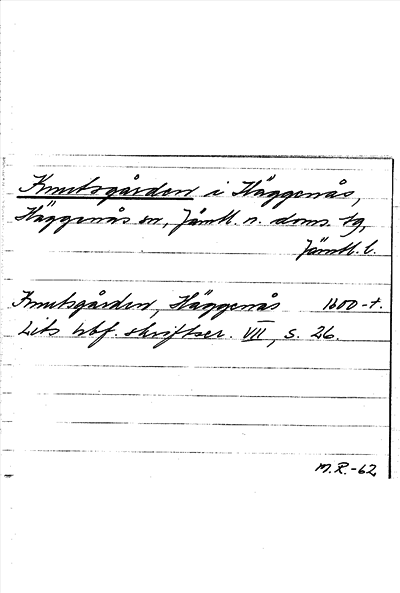 Knutsgården i Häggenås,
Häggenås sn, Jämtl. n. doms. tg,
Jämtl. l.
Knutsgården, Häggenås 1600-t.
Lits hbf. skriftser. VII, s. 26.
M.R.-62